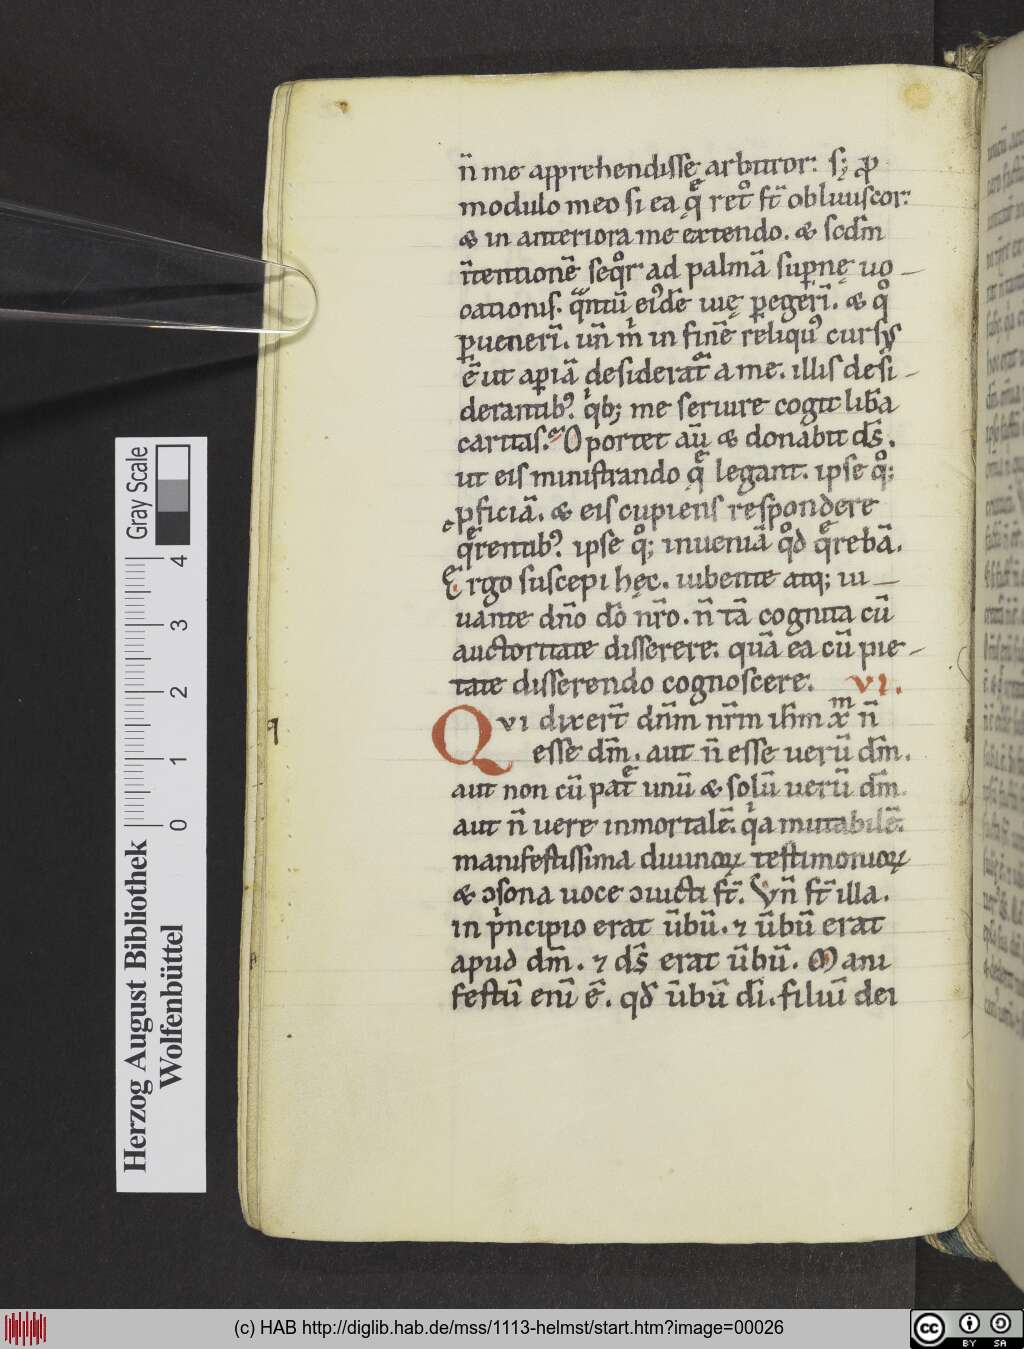 n̄ me apprehendisse arbitror. s; ꝓ
modulo meo si ea q̄ ret° st̄ obliuiscor.
& in anteriora me extendo. & scdm̄
ītentionē seq°r ad palmā supnę uo
cationis. qntū ei'dē uię ꝑegerī. & q°
ꝑuenerī. un̄ m in finē reliqu' cursus
ē ut aꝑiā desiderat a me. illis desi
derantib'. qb; me seruire cogit libā
caritas. Oportet aū & donabit ds̄.
ut eis ministrando q̄ legant. ipse q°;
ꝓficiā. & eis cupiens respondere
q̄rentib'. ipse q°; inueniā q°d q̄rebā.
Ergo suscepi hęc. iubente atq; iu
uante dn̄o dō nr̄o. n̄ tā cognita cū
auctoritate disserere. quā ea cū pie
tate disserendo cognoscere. VI.
Qvi dixert̄ dn̄m nr̄m ihm̄ xm n̄
esse dm̄. aut n̄ esse uerū dm̄.
aut non cū pat unū & solū uerū dm̄.
aut n̄ uere inmortalē. qa mutabilē.
manifestissima diuinoꝝ testimonioꝝ
& ↄsona uoce ↄuicti st̄. Vn̄ st̄ illa.
in pncipio erat ūbū. ⁊ ūbū erat
apud dm̄. ⁊ ds̄ erat ūbū. Mani
festū enī ē. qd ūbū dī. filiū dei
Gray Scale
4
3
2
1
0
Herzog August Bibliothek
Wolfenbüttel
(c) HAB http://diglib.hab.de/mss/1113-helmst/start.htm?image=00026
cc
BY SA